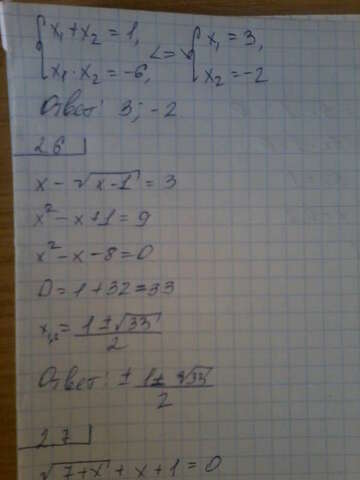 { x₁ + x₂ = 1, <=> { x₁ = 3,
x₁ · x₂ = -6, x₂ = -2
Ответ: 3; -2
26
x - √(x-1) = 3
x² - x + 1 = 9
x² - x - 8 = 0
D = 1 + 32 = 33
x₁,₂ = (1 ± √33)/2
Ответ: ± (1 ± √33)/2
27
√(7+x) + x + 1 = 0